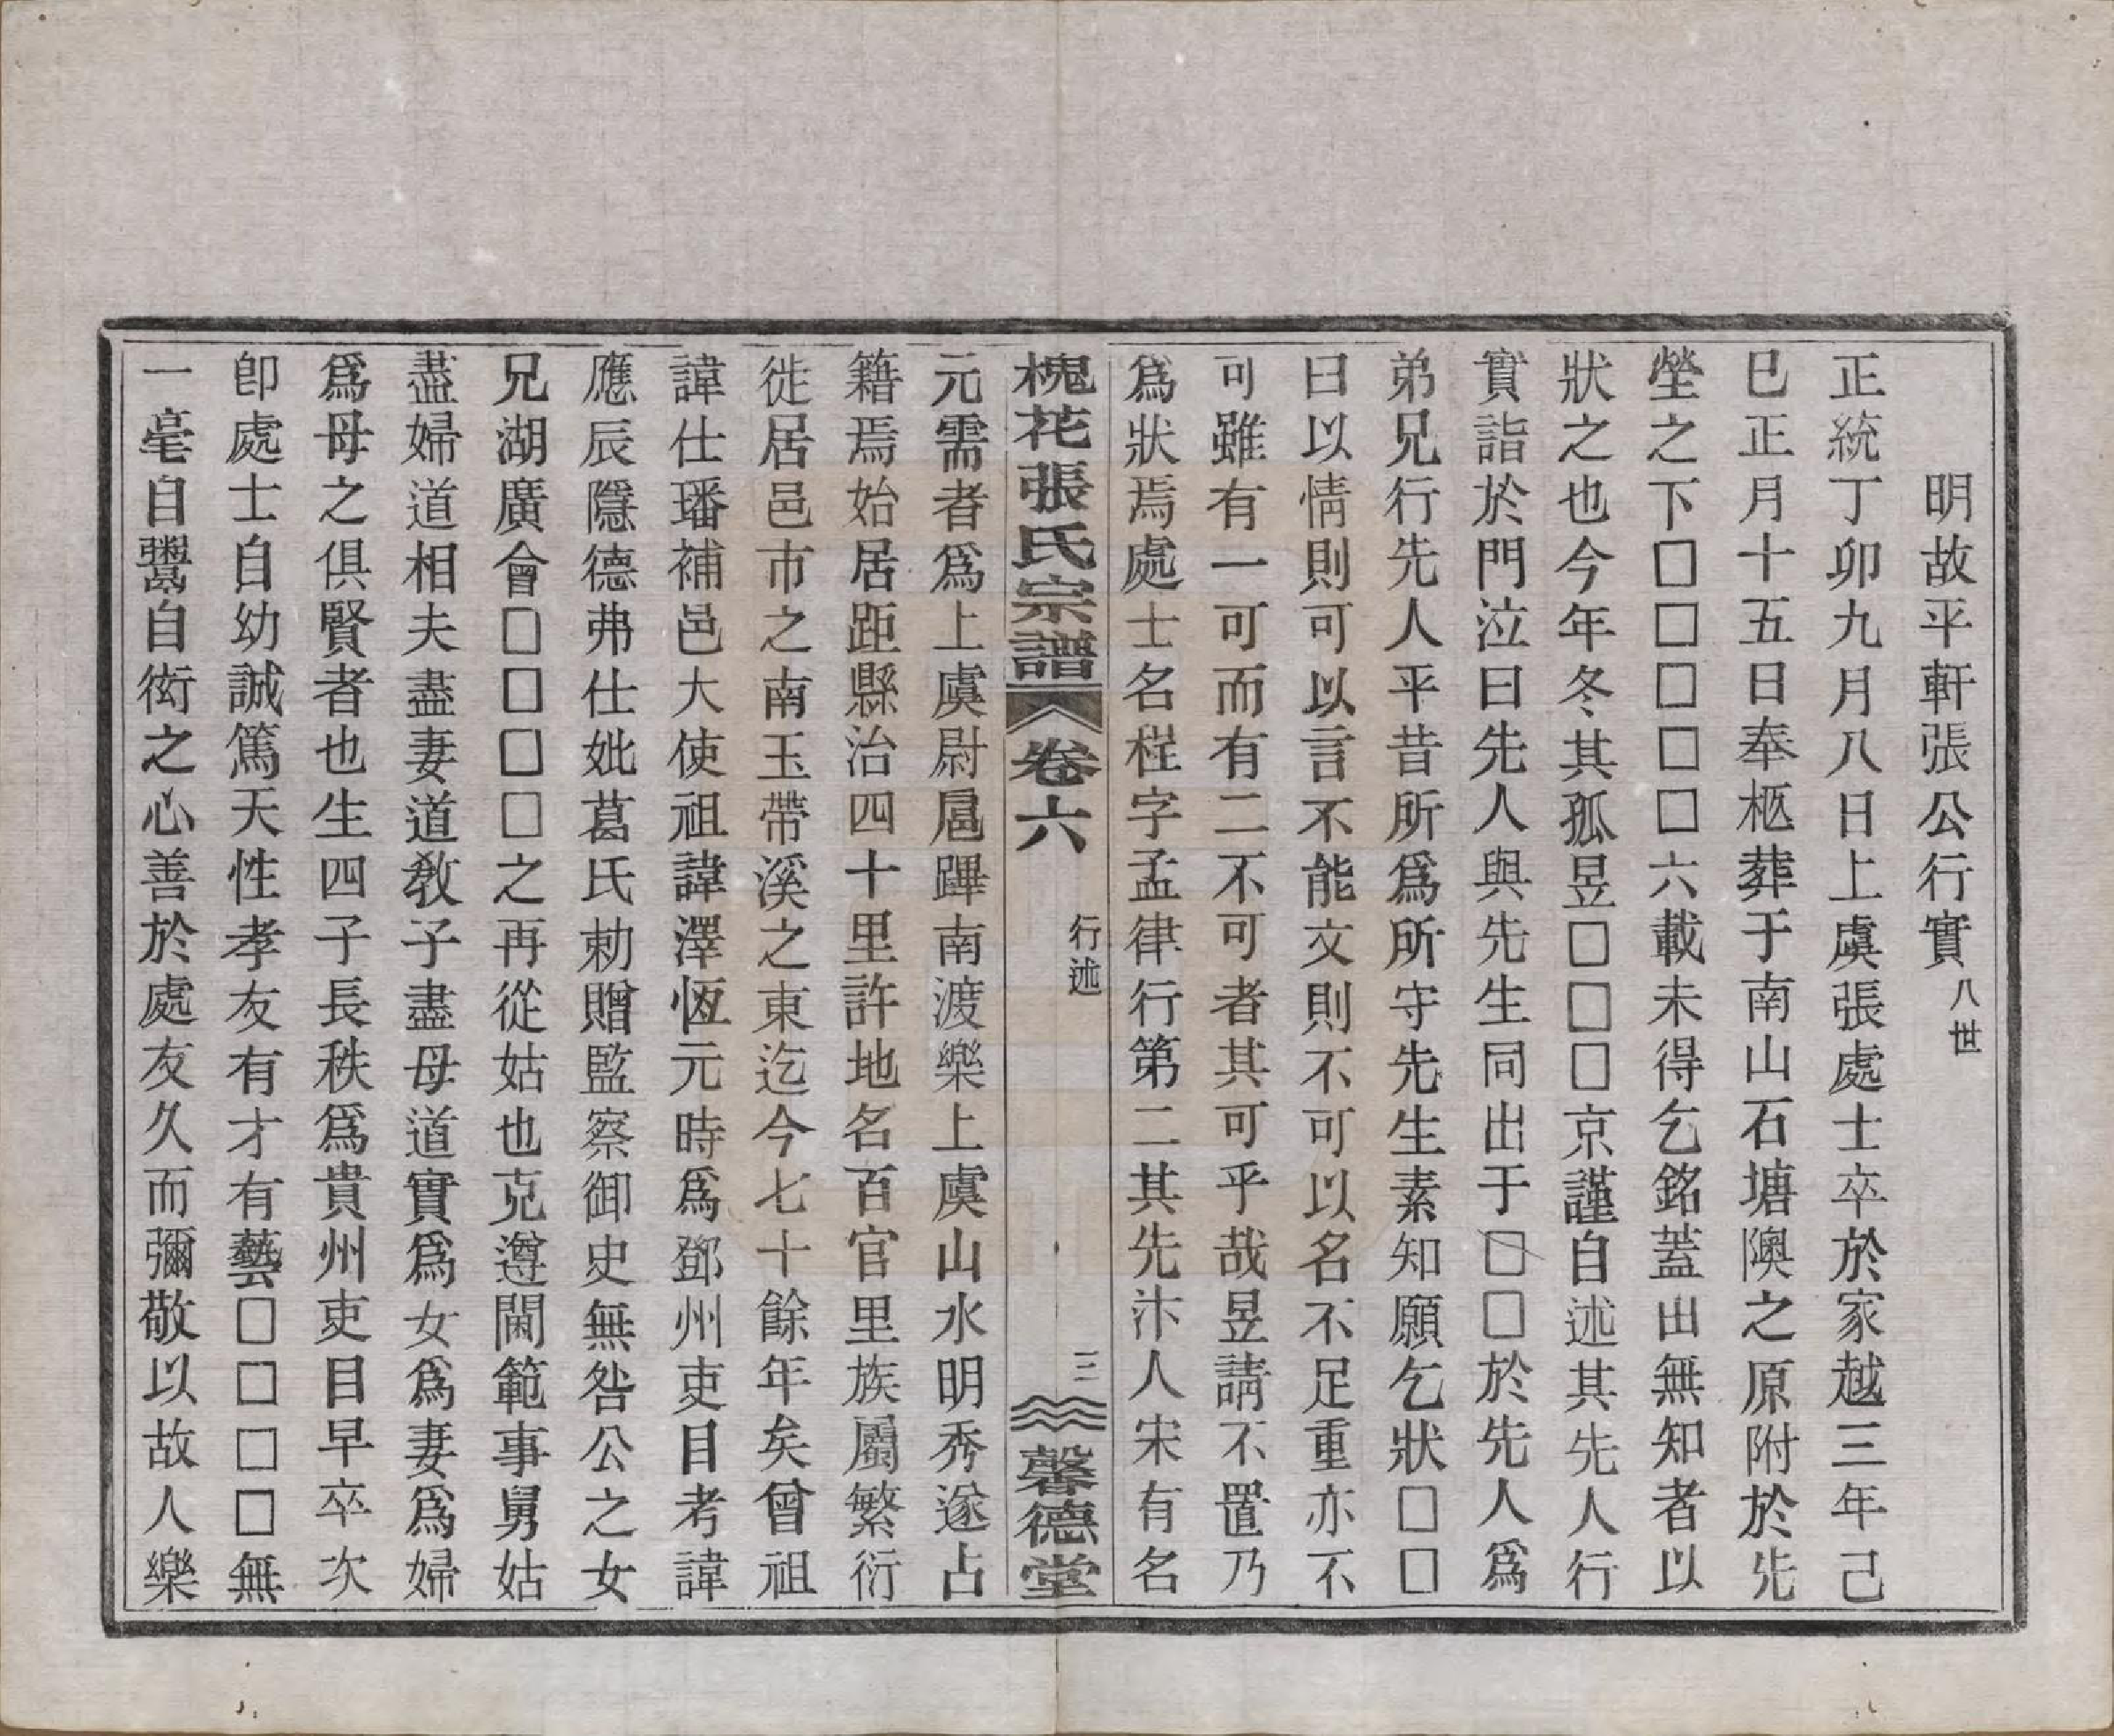 明故平軒張公行實八世
正統丁卯九月八日上虞張處士卒於家越三年己
巳正月十五日奉柩葬于南山石塘隩之原附於先
塋之下□□□□□六載未得乞銘蓋出無知者以
狀之也今年冬其孤昱□□□京謹自述其先人行
實詣於門泣曰先人與先生同出于□□於先人爲
弟兄行先人平昔所爲所守先生素知願乞狀□□
曰以情則可以言不能文則不可以名不足重亦不
可雖有一可而有二不可者其可乎哉昱請不置乃
爲狀焉處士名桎字孟律行第二其先汴人宋有名
槐花張氏宗譜 卷六 行述 三 馨德堂
元需者爲上虞尉扈蹕南渡樂上虞山水明秀遂占
籍焉始居距縣治四十里許地名百官里族屬繁衍
徙居邑市之南玉帶溪之東迄今七十餘年矣曾祖
諱仕璠補邑大使祖諱澤恆元時爲鄧州吏目考諱
應辰隱德弗仕妣葛氏勅贈監察御史無咎公之女
兄湖廣會□□□□之再從姑也克遵閫範事舅姑
盡婦道相夫盡妻道敎子盡母道實爲女爲妻爲婦
爲母之俱賢者也生四子長秩爲貴州吏目早卒次
卽處士自幼誠篤天性孝友有才有藝□□□□無
一毫自鬻自衒之心善於處友久而彌敬以故人樂